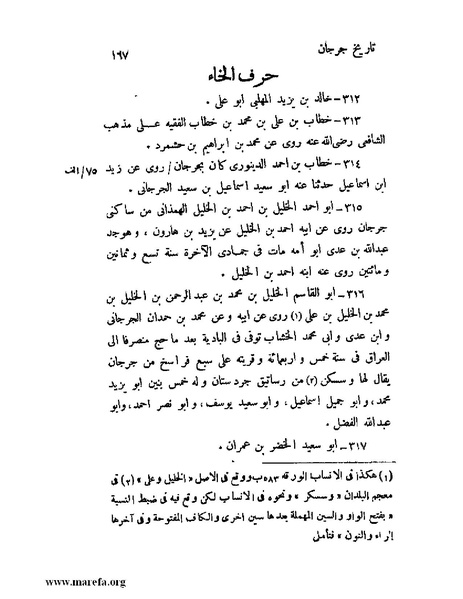 تاريخ جرجان
١٦٧
حرف الخاء
٣١٢-خالد بن يزيد المهلبي ابو على .
٣١٣-خطاب بن على بن محمد بن خطاب الفقيه عــلى مذهب
الشافعى رضى الله عنه روى عن محمد بن ابراهيم بن حشمرد .
٣١٤-خطاب بن احمد الدينورى كان بجرجان/ روى عن زيد ٧٥/الف
ابن اسماعيل حدثنا عنه ابو سعيد اسماعيل بن سعيد الجرجانى .
٣١٥-ابو احمد الخليل بن احمد بن الخليل الهمذانى من ساكنى
جرجان روى عن ابيه احمد بن الخليل عن يزيد بن هارون ، وهوجد
عبدالله بن عدى ابو أمه مات فى جمادى الآخرة سنة تسع وثمانين
ومائتين روى عنه ابنه احمد بن الخليل .
٣١٦-ابو القاسم الخليل بن محمد بن عبد الرحمن بن الخليل بن
محمد بن الخليل بن على (١) روى عن ابيه وعن محمد بن حمدان الجرجانى
وابن عدى وابى محمد الخشاب توفى فى البادية بعد ما حج منصرفا الى
العراق فى سنة خمس واربعمائة وقريته على سبع فراسخ من جرجان
يقال لها وسسكن (٢) من رساتيق جردستان وله خمس بنين ابو يزيد
محمد، وابو جميل إسماعيل، وابو سعيد يوسف، وابو نصر احمد،وابو
عبدالله الفضل .
٣١٧-ابو سعيد الخضر بن عمران .
(١) هكذا فى الانساب الورقه ٥٨٣ب ووقع فى الاصل «الخليل وعلى» (٢) فى
معجم البلدان «وسسكر» ونحوه فى الانساب لكن وقع فيه فى ضبط النسبة
«بفتح الواو والسين المهملة بعدها سين اخرى والكاف المفتوحة وفى آخرها
الراء والنون» فتأمل
www.marefa.org